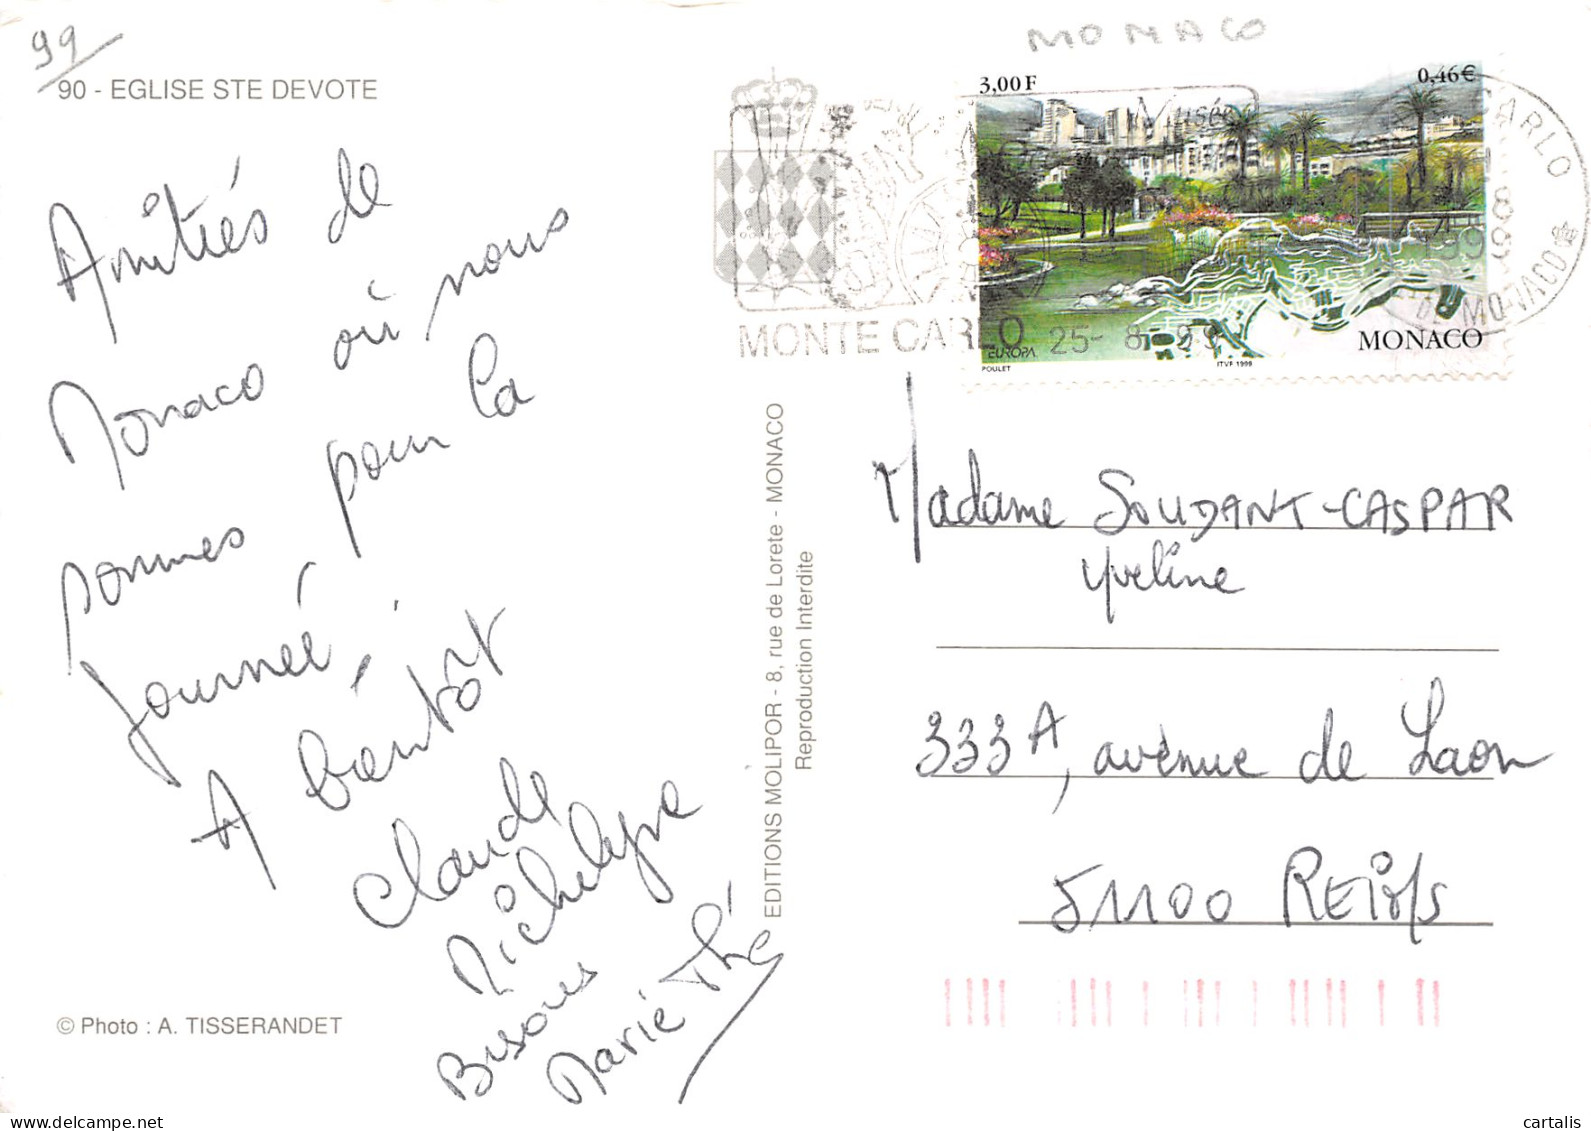 99
90 - EGLISE STE DEVOTE
Amitiés de
Monaco où nous
sommes pour la
journée,
A bientôt
Claude
Bisous
Marie Thé
© Photo : A. TISSERANDET
EDITIONS MOLIPOR - 8, rue de Lorete - MONACO
Reproduction Interdite
MONACO
3,00 F
0,46€
Musée
MONTE CARLO
25- 8-99
EUROPA
POULET
ITVF 1999
MONACO
CARLO
MONACO
Madame SOUDANT-CASPAR
Yveline
333A, avenue de Laon
51100 REIMS
cartalis